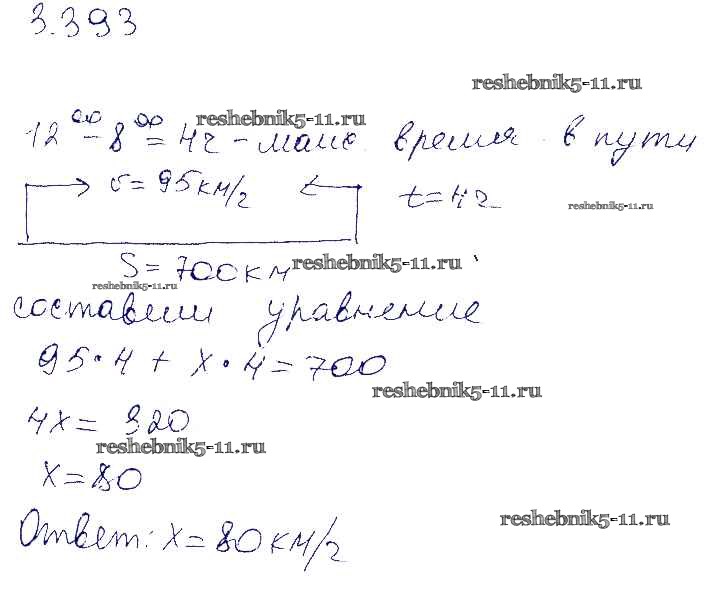 3.393
reshebnik5-11.ru
12⁰⁰ - 8⁰⁰ = 4ч - время в пути
reshebnik5-11.ru
v = 95 км/ч t = 4ч
reshebnik5-11.ru
S = 700 км
reshebnik5-11.ru
reshebnik5-11.ru
составим уравнение
95 · 4 + x · 4 = 700
reshebnik5-11.ru
4x = 320
reshebnik5-11.ru
x = 80
reshebnik5-11.ru
Ответ: x = 80 км/ч